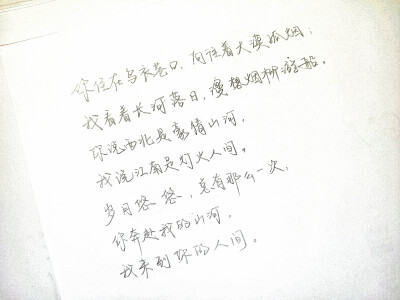 你住在乌衣巷口,向往着大漠孤烟;
我看着长河落日,漫想烟柳游船。
你说西北是豪情山河,
我说江南是灯火人间。
岁月悠悠,总有那么一次,
你奔赴我的山河,
我来到你的人间。